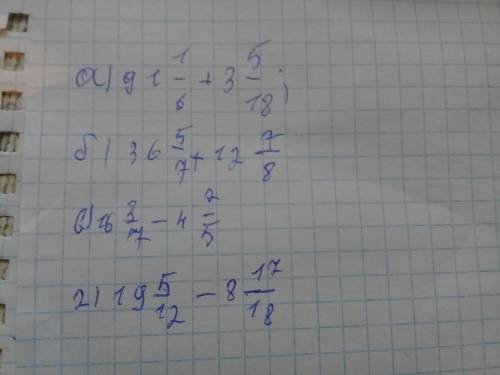 а) 91 1/6 + 3 5/18;
б) 36 5/7 + 12 7/8
в) 16 3/7 - 4 2/5
г) 19 5/12 - 8 17/18